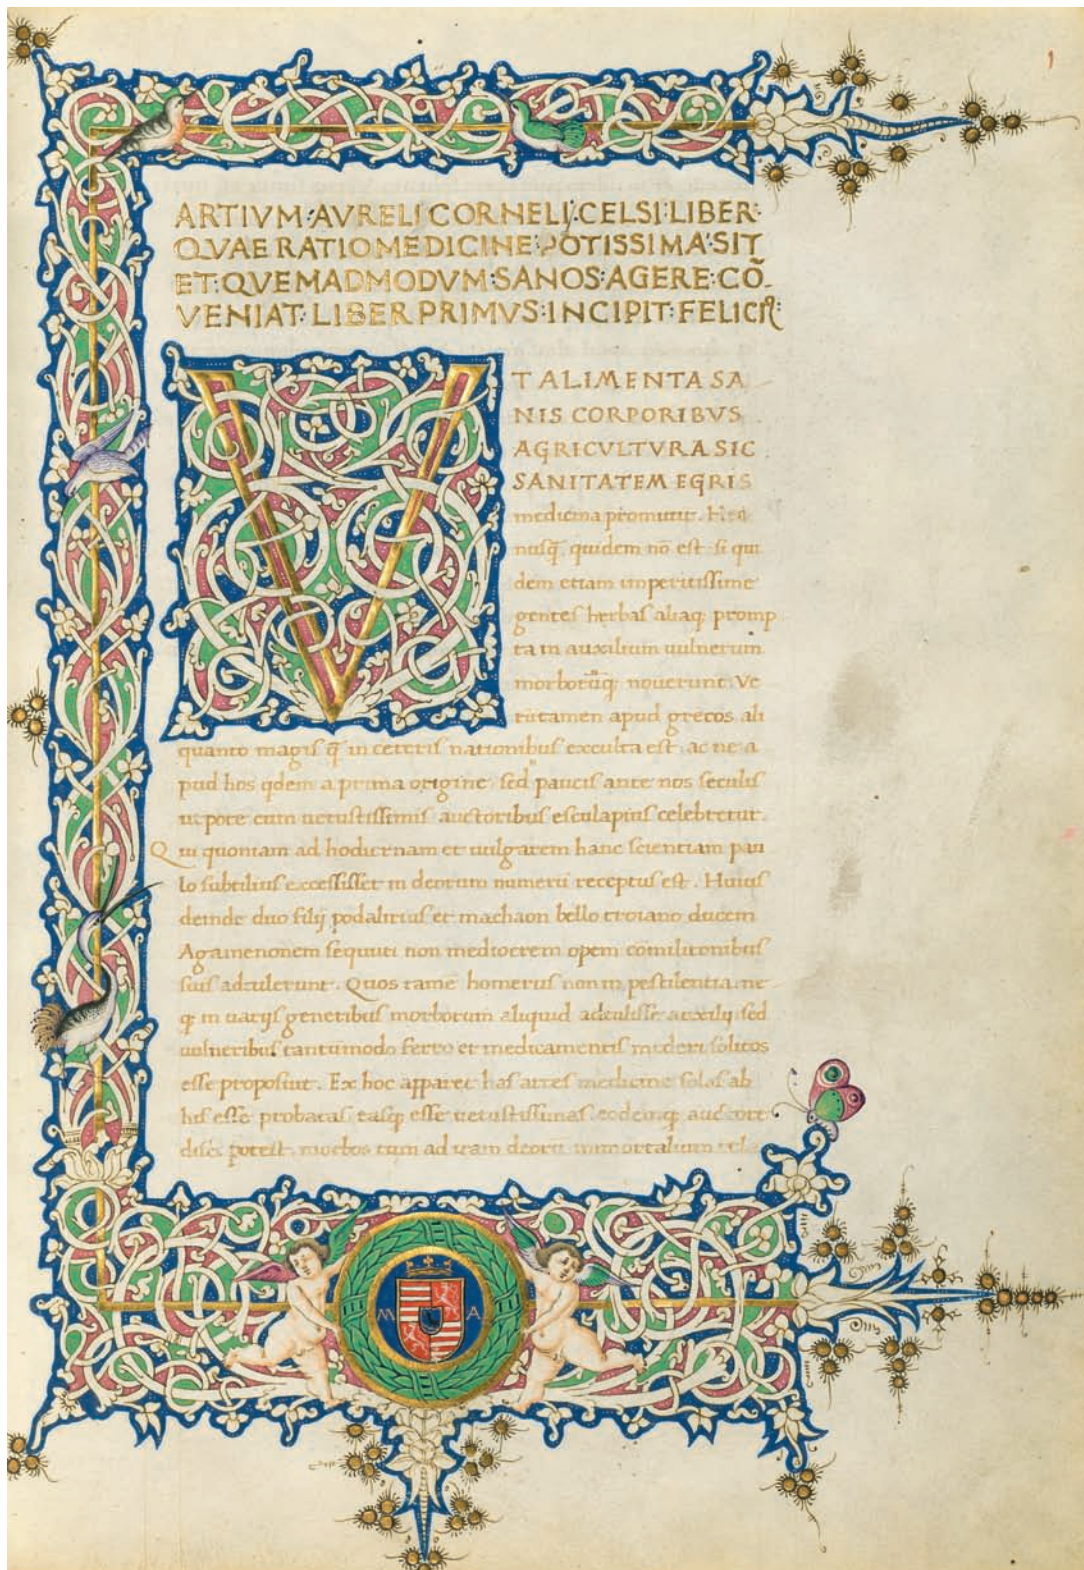 1
ARTIVM:AVRELI CORNELI:CELSI:LIBER:
QVAE RATIO MEDICINE POTISSIMA SIT
ET:QVEMADMODVM:SANOS:AGERE:CÕ-
VENIAT:LIBER PRIMVS:INCIPIT:FELICR:
V
T ALIMENTA SA
NIS CORPORIBVS
AGRICVLTVRA SIC
SANITATEM EGRIS
medicina promittit. Hec
nusq̃ quidem nõ est si qui
dem etiam imperitissime
gentes herbas aliaq; promp
ta in auxilium uulnerum
morborũq; nouerunt. Ve
rũtamen apud grecos ali
quanto magis q̃ in ceteris nationibus exculta est ac ne a
pud hos qdem a prima origine sed paucis ante nos seculis
utpote cum uetustissimis auctoribus esculapius celebretur.
Qui quoniam ad hodiernam et uulgarem hanc scientiam pau
lo subtilius excessisset in deorum numerũ receptus est. Huius
deinde duo filij podalirius et machaon bello troiano ducem
Agamenonem sequuti non mediocrem opem cõmilitonibus
suis adtulerunt. Quos tamẽ homerus non in pestilentia ne
q; in uarijs generibus morborum aliquid adtulisse auxilij sed
uulneribus tantũmodo ferro et medicamentis mederi solitos
esse proposuit. Ex hoc apparet has artes medicine solas ab
his esse probatas easq; esse uetustissimas eodemq; auctore
disci potest morbos tum ad iram deorũ immortalium rel
M A